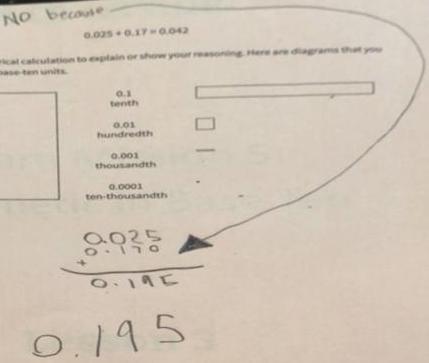 NO because
0.025 + 0.17 = 0.042
rical calculation to explain or show your reasoning. Here are diagrams that you
base-ten units.
0.1
tenth
0.01
hundredth
0.001
thousandth
0.0001
ten-thousandth
0.025
0.170
+
0.195
0.195